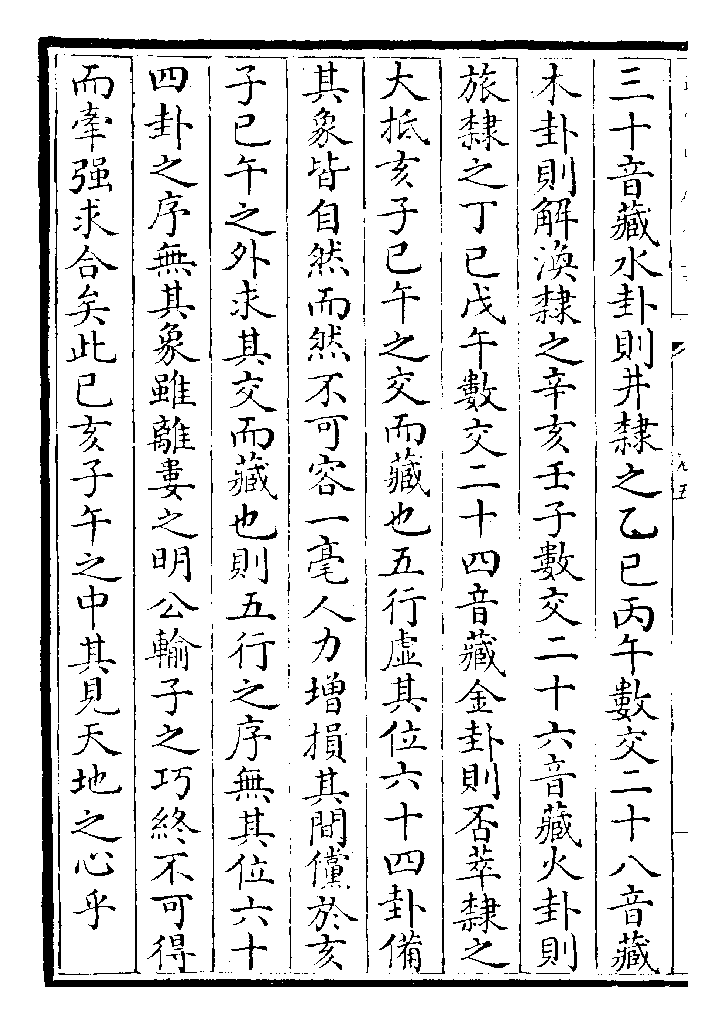 三十音藏水卦則井隸之乙巳丙午數交二十八音藏
木卦則解渙隸之辛亥壬子數交二十六音藏火卦則
旅隸之丁巳戊午數交二十四音藏金卦則否萃隸之
大抵亥子巳午之交而藏也五行虛其位六十四卦備
其象皆自然而然不可容一毫人力增損其間儻於亥
子巳午之外求其交而藏也則五行之序無其位六十
四卦之序無其象雖離婁之明公輸子之巧終不可得
而牽强求合矣此巳亥子午之中其見天地之心乎